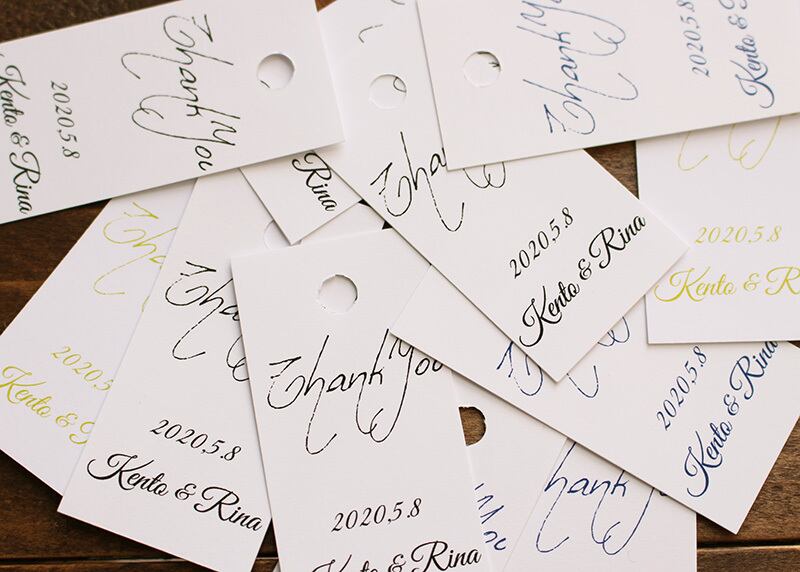 Thank You
2020,5.8
Kento & Rina
Thank You
2020,5.8
Kento &
Rina
Thank
2020,5.8
Kento & Rina
2020,5.8
Kento & R
2020,5.
Kento &
2020,5.8
Kento & Rina
Thank You
2020,5.8
Kento & Rina
2020,5.8
Kento & Rina
hank You
You